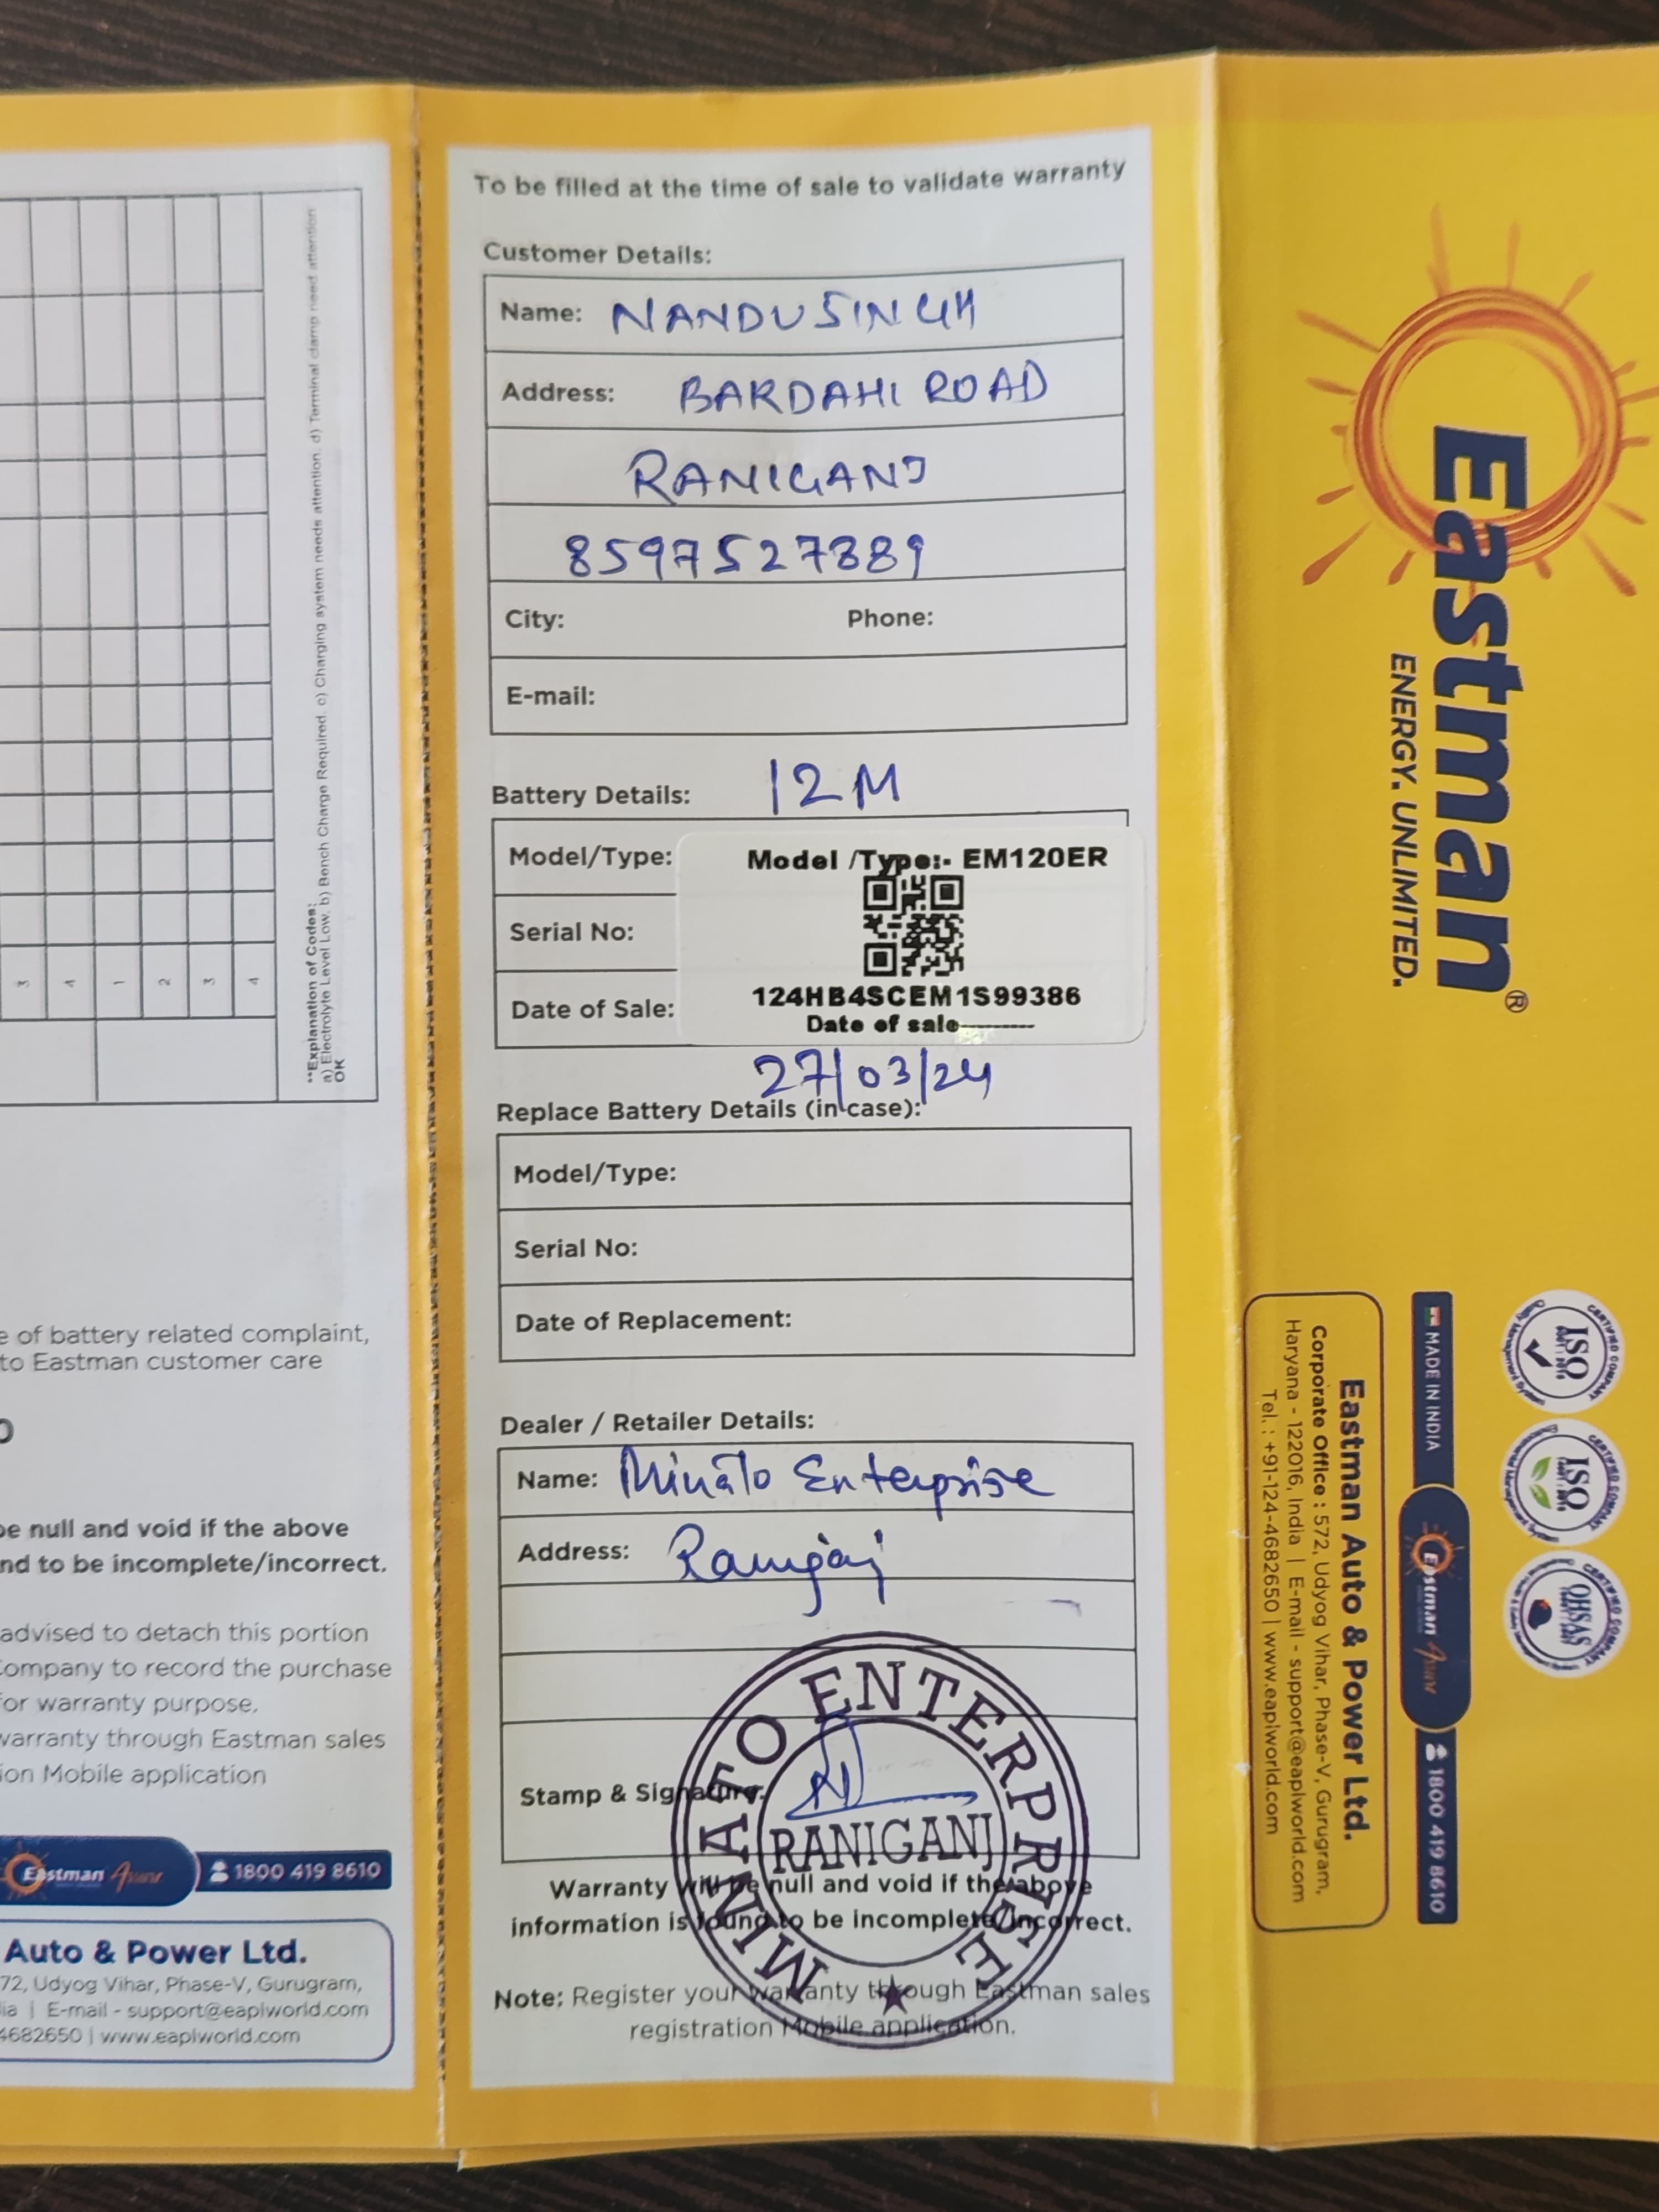 3
4
1
2
3
4
**Explanation of Codes:
a) Electrolyte Level Low. b) Bench Charge Required. c) Charging system needs attention. d) Terminal clamp need attention
OK
e of battery related complaint,
to Eastman customer care
be null and void if the above
nd to be incomplete/incorrect.
advised to detach this portion
Company to record the purchase
or warranty purpose.
warranty through Eastman sales
ion Mobile application
Eastman Assure 1800 419 8610
Auto & Power Ltd.
72, Udyog Vihar, Phase-V, Gurugram,
ia | E-mail - support@eaplworld.com
4682650 | www.eaplworld.com
To be filled at the time of sale to validate warranty
Customer Details:
Name: NANDU SINGH
Address: BARDAHI ROAD
RANIGANJ
8597527889
City: Phone:
E-mail:
Battery Details: 12M
Model/Type: Model /Type:- EM120ER
Serial No:
124HB4SCEM1S99386
Date of Sale: Date of sale
27/03/24
Replace Battery Details (in case):
Model/Type:
Serial No:
Date of Replacement:
Dealer / Retailer Details:
Name: Minato Enterprise
Address: Raniganj
Stamp & Signature:
MINATO ENTERPRISE
RANIGANJ
Warranty will be null and void if the above
information is found to be incomplete/incorrect.
Note: Register your warranty through Eastman sales
registration Mobile application.
Eastman®
ENERGY. UNLIMITED.
CERTIFIED COMPANY
ISO
Quality Management System
CERTIFIED COMPANY
ISO
CERTIFIED COMPANY
OHSAS
MADE IN INDIA Eastman Assure 1800 419 8610
Eastman Auto & Power Ltd.
Corporate Office : 572, Udyog Vihar, Phase-V, Gurugram,
Haryana - 122016, India | E-mail - support@eaplworld.com
Tel. : +91-124-4682650 | www.eaplworld.com